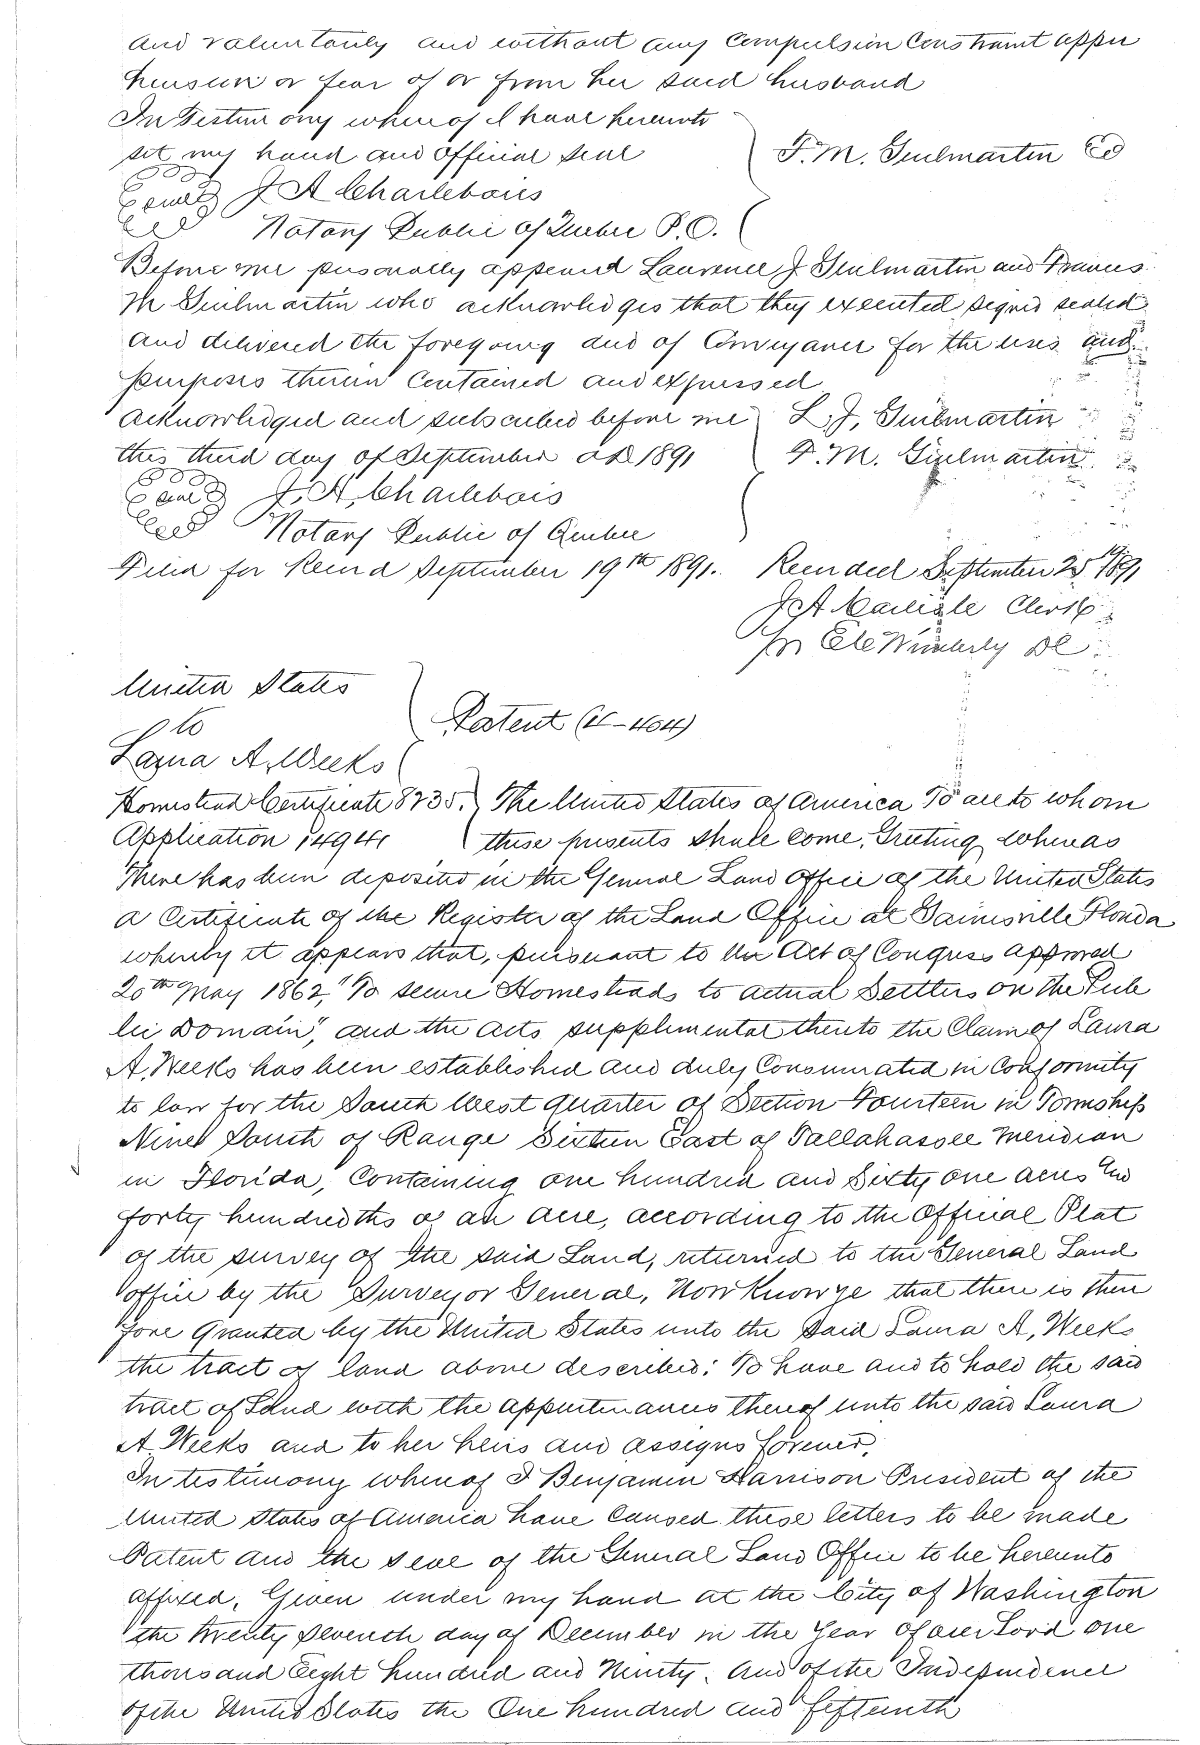 and voluntarily and without any Compulsion Constraint appre
hension or fear of or from her said husband
In Testimony whereof I have hereunto
set my hand and official seal
F. M. Guilmartin
J A Charlebois
Notary Public of Quebec P.C.
Before me personally appeared Laurence J Guilmartin and Frances
M Guilmartin who acknowledges that they executed signed sealed
and delivered the foregoing deed of Conveyance for the uses and
purposes therein contained and expressed
acknowledged and subscribed before me
L. J. Guilmartin
this third day of September AD 1891
F. M. Guilmartin
seal J. A. Charlebois
Notary Public of Quebec
Filed for Record September 19th 1891. Recorded September 25 1891
J A Carlisle Clerk
Wimberly DC
United States
to
Laura A. Weeks
Patent (4-404)
Homestead Certificate 8235. The United States of America To all to whom
Application 14941 these presents shall come, Greeting, Whereas
There has been deposited in the General Land Office of the United States
a Certificate of the Register of the Land Office at Gainesville Florida
whereby it appears that, pursuant to the Act of Congress approved
20th May 1862, "To secure Homesteads to actual Settlers on the Pub
lic Domain", and the acts supplemental thereto the Claim of Laura
A. Weeks has been established and duly Consumated in Conformity
to law for the South West quarter of Section Fourteen in Township
Nine South of Range Sixteen East of Tallahassee Meridian
in Florida, Containing one hundred and Sixty one acres and
forty hundredths of an acre, according to the Official Plat
of the survey of the said Land, returned to the General Land
office by the Surveyor General, Now Know ye that there is there
fore Granted by the United States unto the said Laura A, Weeks
the tract of land above described: To have and to hold the said
tract of Land with the appurtenances thereof unto the said Laura
A. Weeks and to her heirs and assigns forever.
In testimony whereof I Benjamin Harrison President of the
United States of America have caused these letters to be made
Patent and the seal of the General Land Office to be hereunto
affixed, Given under my hand at the City of Washington
the twenty seventh day of December in the Year of our Lord one
thousand Eight hundred and Ninety. and of the Independence
of the United States the One hundred and fifteenth